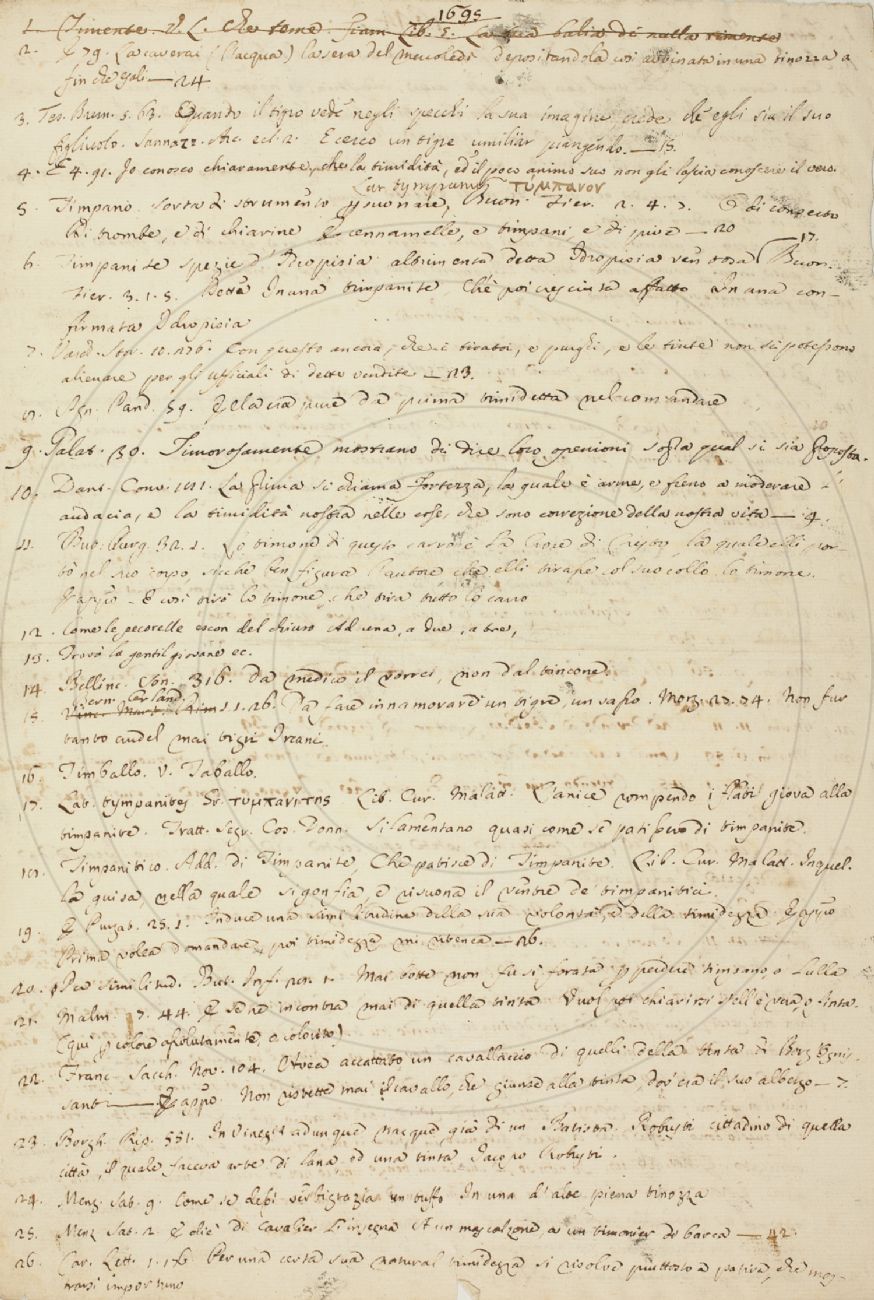 1695
1. Timente. V. L. che teme. Fiam. Lib. 5. La sua balia di nulla timente
2. E 79. La caverai (l'acqua) la sera del mercoledì depositandola così abbinata in una tinozza a
fin che 24
3. Tes. Brun. 5. 63. Quando il tigro vede negli specchi la sua imagine crede ch'egli sia il suo
figliuolo. Sannazz. Arc. ecl. 2. E cerco un tigre umiliar piangendo. — 15.
4. E 4. 91. Io conosco chiaramente, che la timidità, ed il poco animo suo non gli lascia conoscere il vero.
Lat. tympanum τύμπανον
5. Timpano. Sorta di strumento p suonare, Buon. Fier. 2. 4. 7. E di concerto
Di trombe, e di chiarine E cennamelle, e timpani, e di pive — 20
17.
6. Timpanite spezie d'Idropisia altrimenti detta Idropisia ventosa Buon.
Fier. 3. 1. 5. Dette In una timpanite, Ch'è poi cresciuta affatto In una con-
firmata Idropisia
7. Varch. Stor. 10. 276. Con questo ancora, che i tiratoi, e purghi, e le tinte non si potessono
alienare per gli ufficiali di dette vendite — 23.
8. Agn. Pand. 59. Ella cia pure da prima timidetta nel comandare
9. Galat. 30. Timorosamente mostrano di dire loro openioni sopra qual si sia proposta.
10. Dant. Conv. 181. La prima si chiama Fortezza, la quale è arme, e freno a moderare l'
audacia, e la timidità nostra nelle cose, che sono correzione della nostra vita — 4.
11. But. Purg. 32. 1. Lo timone di questo carro è la Croce di Cristo, la quale elli por-
tò nel suo corpo, sicchè ben figura l'autore, che elli tirasse col suo collo lo timone.
E appo. E così tirò lo timone, che tira tutto lo carro
12. Come le pecorelle escon del chiuso Ad una, a due, a tre,
13. Trovò la gentil giovane ec.
14. Bellinc. son. 316. Da medico il vorrei, non dal tincone.
Bern. Orland.
15. 1. 1. 26. Da fare innamorare un tigre, un sasso. Morg. 22. 74. Non fur
tanto crudel mai tigri Ircani.
16. Timballo. V. Taballo.
17. Lat. tympanites Gr. τυμπανίτης. Lib. Cur. Malatt. L'anice rompendo i flati giova alla
timpanite. Tratt. Segr. Cos. Donn. Si lamentano quasi come se patissero di timpanite.
18. Timpanitico. Add. di Timpanite, Che patisce di Timpanite. Lib. Cur. Malatt. In quel-
la guisa, nella quale si gonfia, e risuona il ventre de' timpanitici.
19. E Purgat. 25. 1. Induce una similitudine della sua volontà, e della timidezza. E appo
Prima volea domandare, poi timidezza mi ritenea — 26.
20. Per similitud. But. Inf. 28. 1. Mai botte non fu sì forata p perdere timpano, o lulla
21. Malm. 7. 44. E s'e' ne incontra mai di quella tinta Vuol poi chiarirsi s'ell'è vera, o finta.
(qui p colore assolutamente, o colorito)
22. Franc. Sacch. Nov. 104. Aveva accattato un cavallaccio di quelli della tinta di Borg' Ognis-
santi — E appo. Non ristette mai il cavallo, che giunse alla tinta, dov'era il suo albergo — 7.
23. Borgh. Rip. 551. In Vinegia adunque nacque già di un Batista Robusti cittadino di quella
città, il quale faceva arte di lana, ed una tinta Jacopo Robusti.
24. Menz. Sat. 9. Come se desi verbigrazia un tuffo In una d'aloe piena tinozza
25. Menz. Sat. 2. E diè di Cavalier l'insegna A un mascalzone, a un timonier di barca — 42
26. Car. Lett. 1. 176. Per una certa sua natural timidezza si risolve piuttosto a patire, che mos-
trarsi importuno